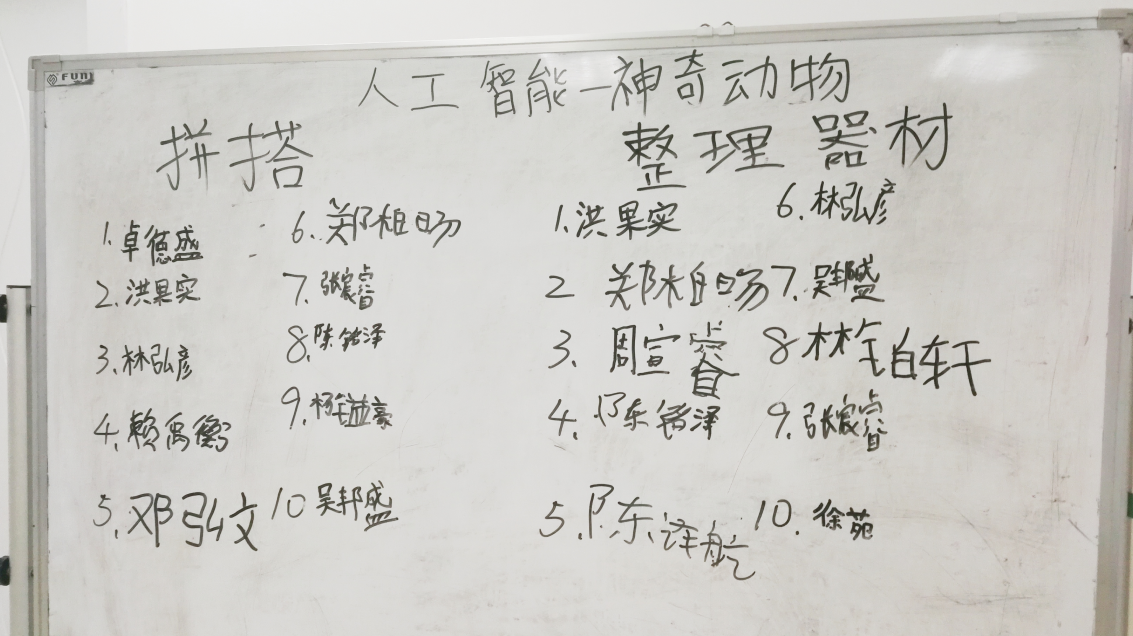 FUNJ
人工智能—神奇动物
拼搭
1.卓德盛
2.洪果实
3.林弘彦
4.赖禹衡
5.邓弘文
6.郑柏旸
7.张宸睿
8.陈铭泽
9.杨镒豪
10吴邦盛
整理器材
1.洪果实
2 郑柏旸
3.周宣睿
4.陈铭泽
5.陈泽航
6.林弘彦
7.吴邦盛
8林铂轩
9.张宸睿
10.徐苑